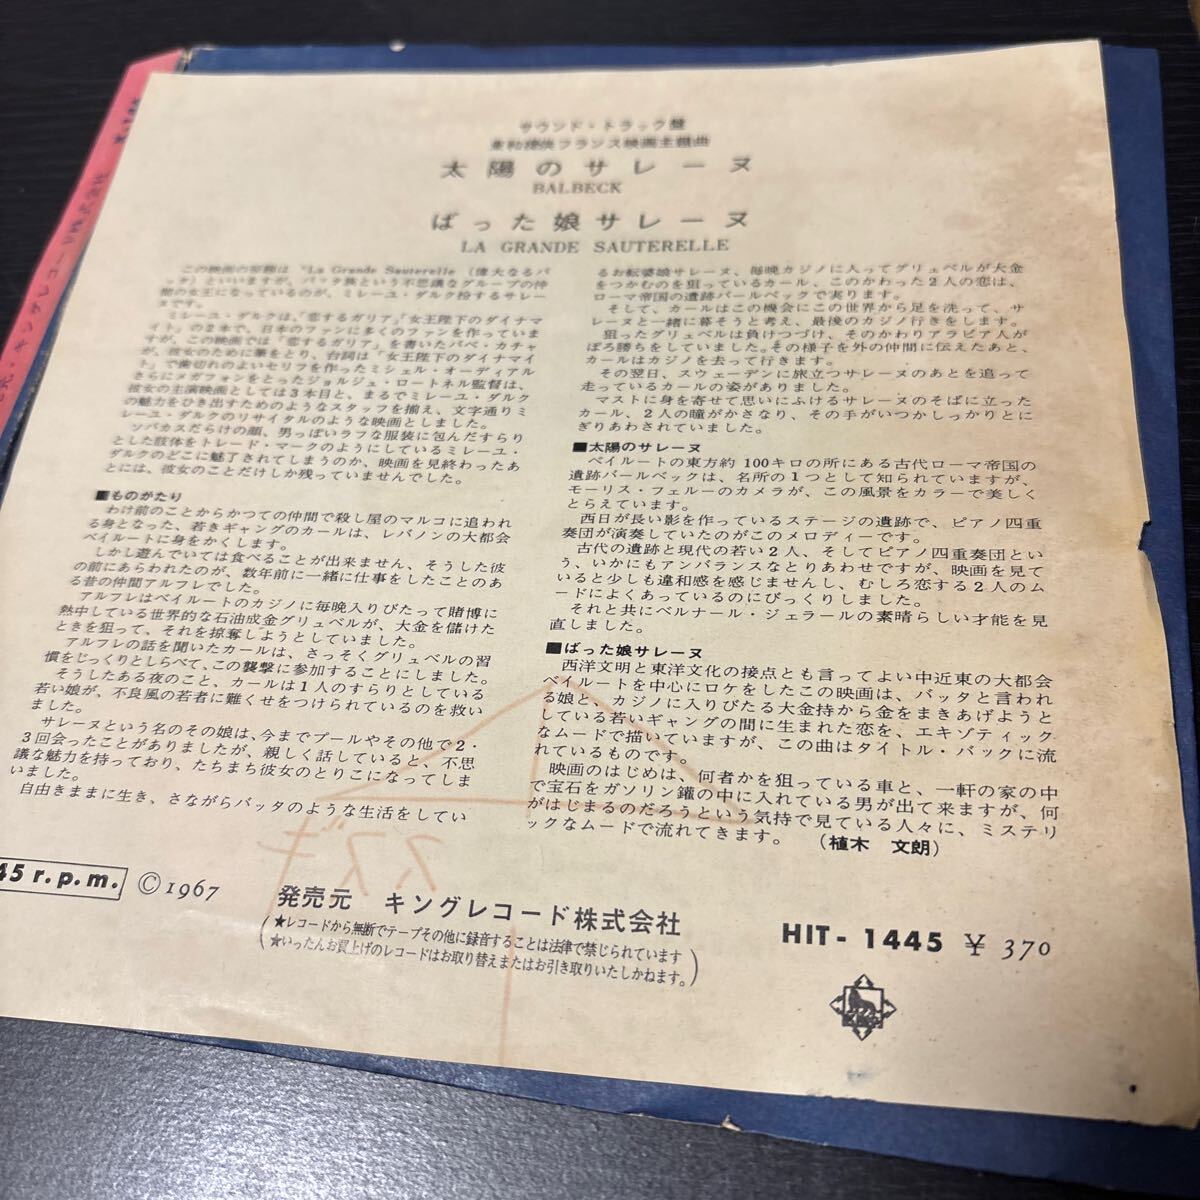 サウンド・トラック盤
東和提供フランス映画主題曲
太陽のサレーヌ
BALBECK
ばった娘サレーヌ
LA GRANDE SAUTERELLE
この映画の原題は "La Grande Sauterelle (偉大なるバ
ッタ) といいますが、バッタ族という不思議なグループの仲
間の女王になっているのが、ミレーユ・ダルク扮するサレー
ヌです。
ミレーユ・ダルクは、「恋するガリア」「女王陛下のダイナマ
イト」の2本で、日本のファンに多くのファンを作っていま
すが、この映画では「恋するガリア」を書いたバベ・カチャ
が、彼女のために筆をとり、台詞は「女王陛下のダイナマイ
ト」で歯切れのよいセリフを作ったミシェル・オーディアル
さらにメガフォンをとったジョルジュ・ロートネル監督は、
彼女の主演映画としては3本目と、まるでミレーユ・ダルク
の魅力をひき出すためのようなスタッフを揃え、文字通りミ
レーユ・ダルクのリサイタルのような映画としました。
ソバカスだらけの顔、男っぽいラフな服装に包んだすらり
とした肢体をトレード・マークのようにしているミレーユ・
ダルクのどこに魅了されてしまうのか、映画を見終わったあ
とには、彼女のことだけしか残っていませんでした。
■ものがたり
わけ前のことからかつての仲間で殺し屋のマルコに追われ
る身となった、若きギャングのカールは、レバノンの大都会
ベイルートに身をかくします。
しかし遊んでいては食べることが出来ません、そうした彼
の前にあらわれたのが、数年前に一緒に仕事をしたことのあ
る昔の仲間アルフレでした。
アルフレはベイルートのカジノに毎晩入りびたって賭博に
熱中している世界的な石油成金グリュベルが、大金を儲けた
ときを狙って、それを掠奪しようとしていました。
アルフレの話を聞いたカールは、さっそくグリュベルの習
慣をじっくりとしらべて、この襲撃に参加することにしました。
そうしたある夜のこと、カールは1人のすらりとしている
若い娘が、不良風の若者に難くせをつけられているのを救い
ました。
サレーヌという名のその娘は、今までプールやその他で2・
3回会ったことがありましたが、親しく話していると、不思
議な魅力を持っており、たちまち彼女のとりこになってしま
いました。
自由きままに生き、さながらバッタのような生活をしてい
るお転婆娘サレーヌ、毎晩カジノに入ってグリュベルが大金
をつかむのを狙っているカール、このかわった2人の恋は、
ローマ帝国の遺跡バールベックで実ります。
そして、カールはこの機会にこの世界から足を洗って、サ
レーヌと一緒に暮そうと考え、最後のカジノ行きをします。
狙ったグリュベルは負けつづけ、そのかわりアラビア人が
ぼろ勝ちをしていました。その様子を外の仲間に伝えたあと、
カールはカジノを去って行きます。
その翌日、スウェーデンに旅立つサレーヌのあとを追って
走っているカールの姿がありました。
マストに身を寄せて思いにふけるサレーヌのそばに立った
カール、2人の瞳がかさなり、その手がいつかしっかりとに
ぎりあわされていました。
■太陽のサレーヌ
ベイルートの東方約100キロの所にある古代ローマ帝国の
遺跡バールベックは、名所の1つとして知られていますが、
モーリス・フェルーのカメラが、この風景をカラーで美しく
とらえています。
西日が長い影を作っているステージの遺跡で、ピアノ四重
奏団が演奏していたのがこのメロディーです。
古代の遺跡と現代の若い2人、そしてピアノ四重奏団とい
う、いかにもアンバランスなとりあわせですが、映画を見て
いると少しも違和感を感じませんし、むしろ恋する2人のム
ードによくあっているのにびっくりしました。
それと共にベルナール・ジェラールの素晴らしい才能を見
直しました。
■ばった娘サレーヌ
西洋文明と東洋文化の接点とも言ってよい中近東の大都会
ベイルートを中心にロケをしたこの映画は、バッタと言われ
る娘と、カジノに入りびたる大金持から金をまきあげようと
している若いギャングの間に生まれた恋を、エキゾティック
なムードで描いていますが、この曲はタイトル・バックに流
れているものです。
映画のはじめは、何者かを狙っている車と、一軒の家の中
で宝石をガソリン罐の中に入れている男が出て来ますが、何
がはじまるのだろうという気持で見ている人々に、ミステリ
ックなムードで流れてきます。 (植木 文朗)
45 r.p.m. ©1967
発売元 キングレコード株式会社
(★レコードから無断でテープその他に録音することは法律で禁じられています
★いったんお買上げのレコードはお取り替えまたはお引き取りいたしかねます。)
HIT-1445 ¥ 370